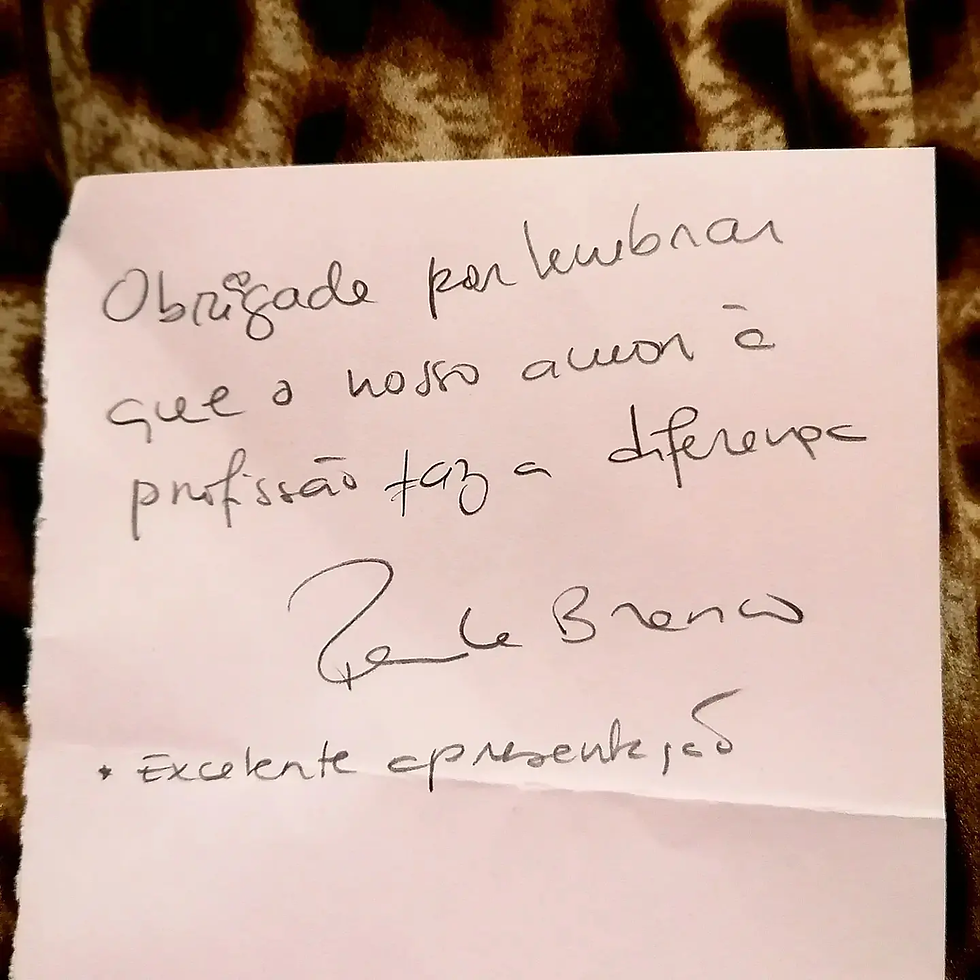 Obrigada por lembrar
que o nosso amor à
profissão faz a diferença
Branco
* Excelente apresentação